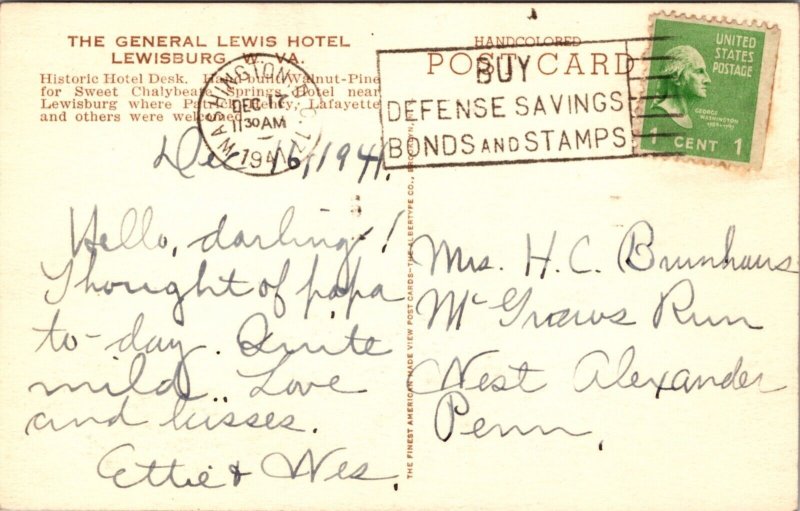 THE GENERAL LEWIS HOTEL
LEWISBURG, W. VA.
Historic Hotel Desk. Hand-built Walnut-Pine
for Sweet Chalybeate Springs Hotel near
Lewisburg where Patrick Henry, Lafayette
and others were welcomed.
WASHINGTON, D.C. 12
DEC 17
11 30 AM
1941
HANDCOLORED
POST CARD
BUY
DEFENSE SAVINGS
BONDS AND STAMPS
UNITED
STATES
POSTAGE
GEORGE
WASHINGTON
1789-1797
1 CENT 1
Dec 16, 1941.
Hello, darling!
Thought of papa
to-day. Quite
mild. Love
and kisses.
Ettie & Wes.
THE FINEST AMERICAN MADE VIEW POST CARDS—THE ALBERTYPE CO., BROOKLYN, N.
Mrs. H. C. Brunhaus
Mc Graws Run
West Alexander
Penn.